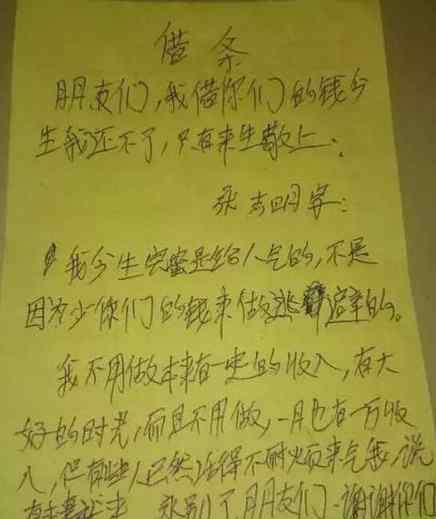 借条
朋友们，我借你们的钱今
生我还不了，只有来生敬上.
张志明字：
我今生完蛋是给人气的，不是
因为少你们的钱来做逃避的。
我不用做本来有一定的收入，有大
好的时光，而且不用做，一月也有一万收
入，但有些人已然活得不耐烦来气我，说
永别了朋友们-谢谢你们